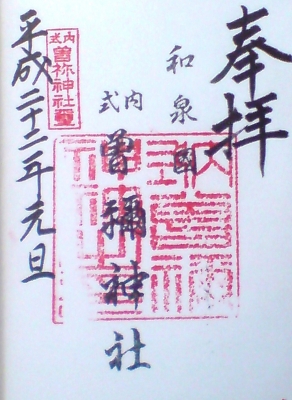 奉拝
和泉国
式内
曽禰神社
式内
曽祢神社璽
平成二十二年元旦